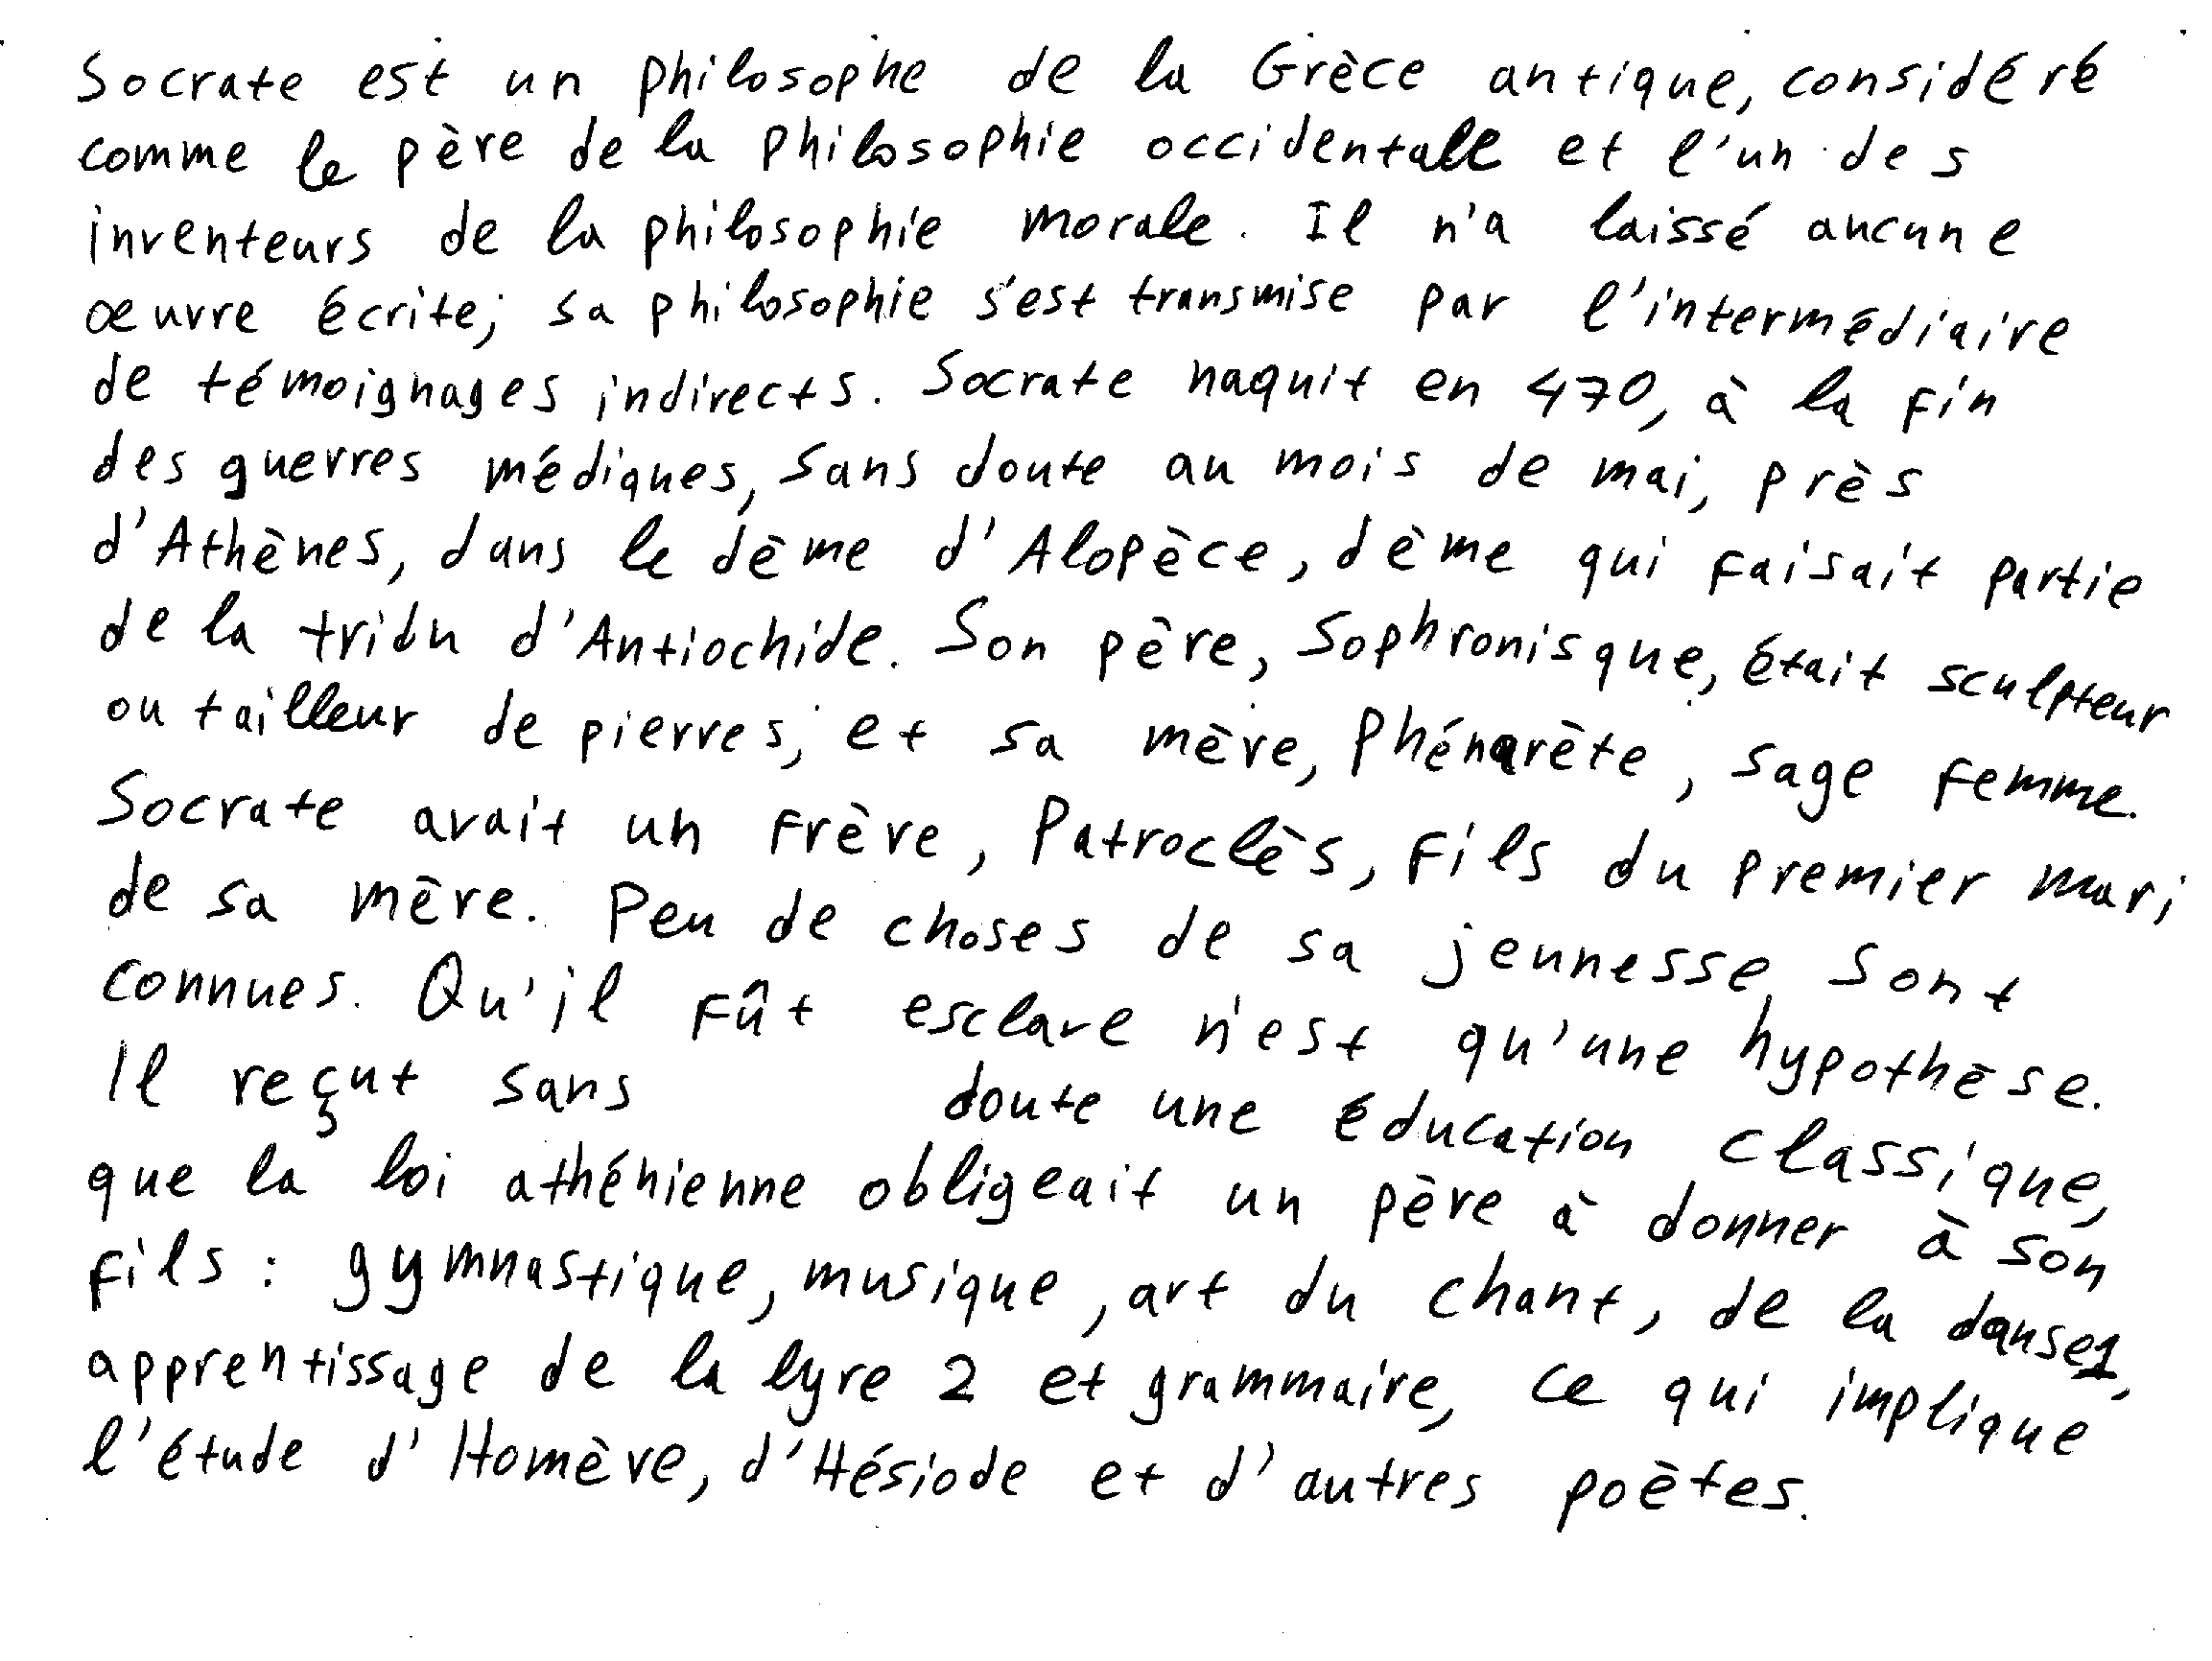 Socrate est un philosophe de la Grèce antique, considéré
comme le père de la philosophie occidentale et l'un des
inventeurs de la philosophie morale. Il n'a laissé aucune
œuvre écrite; sa philosophie s'est transmise par l'intermédiaire
de témoignages indirects. Socrate naquit en 470, à la fin
des guerres médiques, sans doute au mois de mai, près
d'Athènes, dans le dème d'Alopèce, dème qui faisait partie
de la tribu d'Antiochide. Son père, Sophronisque, était sculpteur
ou tailleur de pierres, et sa mère, Phénarète, sage femme.
Socrate avait un frère, Patroclès, fils du premier mari
de sa mère. Peu de choses de sa jeunesse sont
connues. Qu'il fût esclave n'est qu'une hypothèse.
Il reçut sans doute une éducation classique,
que la loi athénienne obligeait un père à donner à son
fils : gymnastique, musique, art du chant, de la danse1,
apprentissage de la lyre 2 et grammaire, ce qui implique
l'étude d'Homère, d'Hésiode et d'autres poètes.